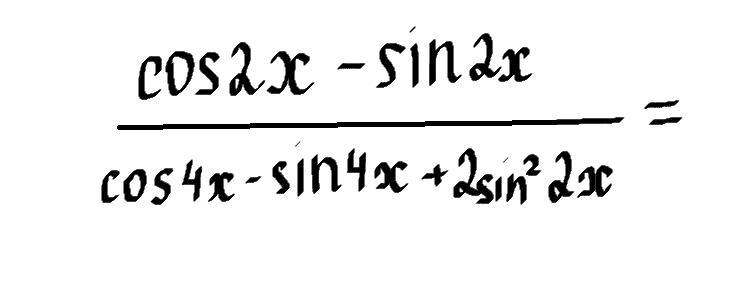 cos2x - sin2x
=
cos4x - sin4x + 2sin² 2x